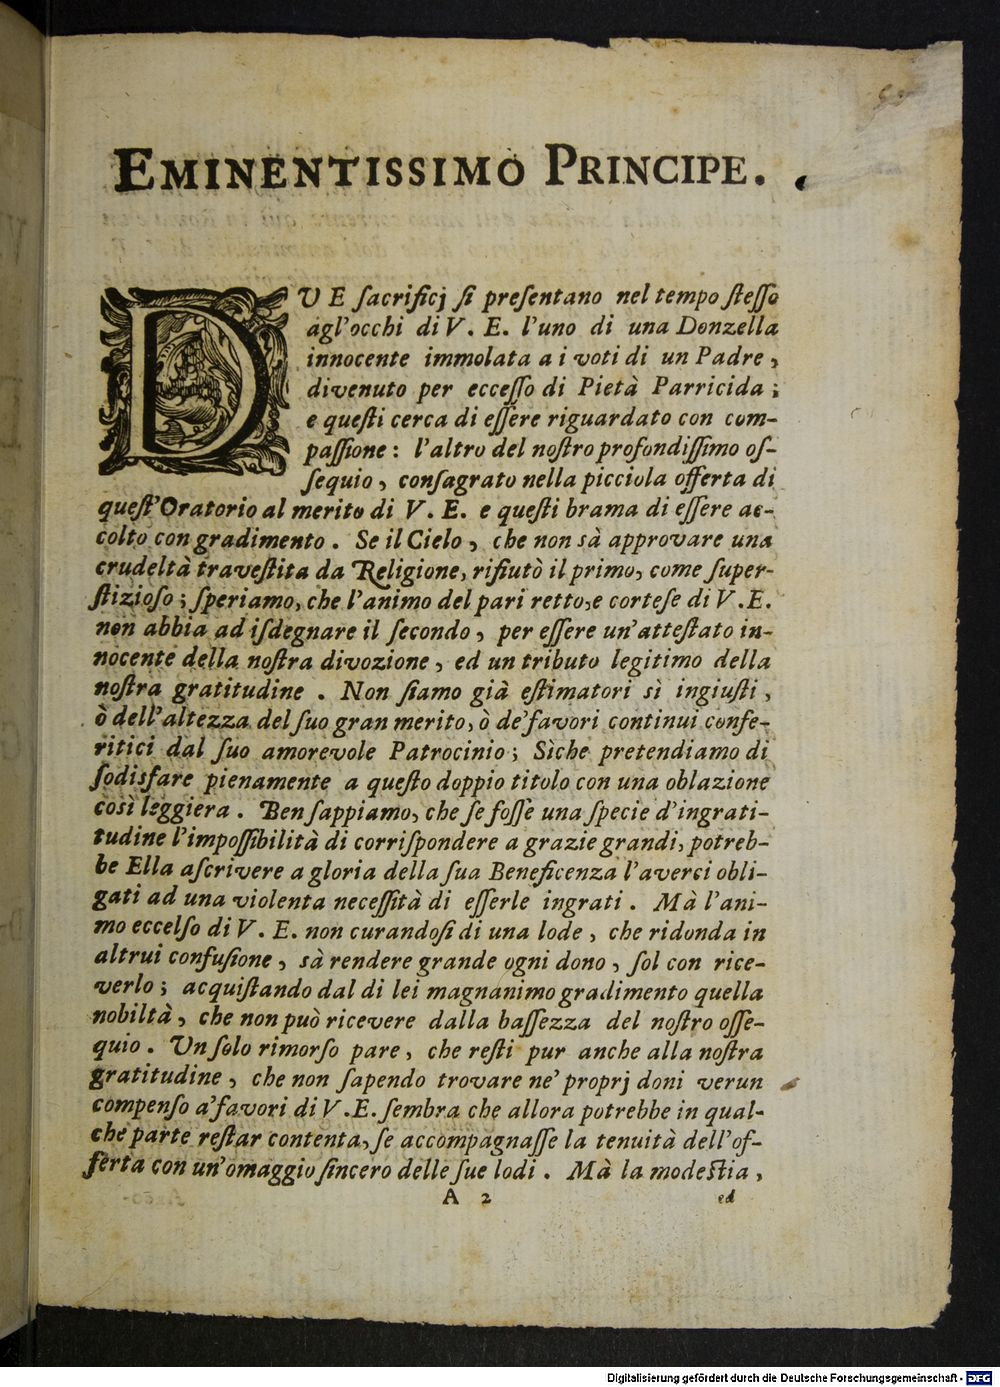 EMINENTISSIMO PRINCIPE.
DUE ſacrificj ſi preſentano nel tempo ſteſſo
agl'occhi di V. E. l'uno di una Donzella
innocente immolata a i voti di un Padre,
divenuto per ecceſſo di Pietà Parricida;
e queſti cerca di eſſere riguardato con com-
paſſione: l'altro del noſtro profondiſſimo oſ-
ſequio, conſagrato nella picciola offerta di
queſt'Oratorio al merito di V. E. e queſti brama di eſſere ac-
colto con gradimento. Se il Cielo, che non sà approvare una
crudeltà traveſtita da Religione, rifiutò il primo, come ſuper-
ſtizioſo; ſperiamo, che l'animo del pari retto, e corteſe di V. E.
non abbia ad iſdegnare il ſecondo, per eſſere un'atteſtato in-
nocente della noſtra divozione, ed un tributo legitimo della
noſtra gratitudine. Non ſiamo già eſtimatori sì ingiuſti,
ò dell'altezza del ſuo gran merito, ò de'favori continui confe-
ritici dal ſuo amorevole Patrocinio; Sìche pretendiamo di
ſodisfare pienamente a queſto doppio titolo con una oblazione
così leggiera. Ben ſappiamo, che ſe foſſe una ſpecie d'ingrati-
tudine l'impoſſibilità di corriſpondere a grazie grandi, potreb-
be Ella aſcrivere a gloria della ſua Beneficenza l'averci obli-
gati ad una violenta neceſſità di eſſerle ingrati. Mà l'ani-
mo eccelſo di V. E. non curandoſi di una lode, che ridonda in
altrui confuſione, sà rendere grande ogni dono, ſol con rice-
verlo; acquiſtando dal di lei magnanimo gradimento quella
nobiltà, che non può ricevere dalla baſſezza del noſtro oſſe-
quio. Un ſolo rimorſo pare, che reſti pur anche alla noſtra
gratitudine, che non ſapendo trovare ne' proprj doni verun
compenſo a'favori di V. E. ſembra che allora potrebbe in qual-
che parte reſtar contenta, ſe accompagnaſſe la tenuità dell'of-
ferta con un'omaggio ſincero delle ſue lodi. Mà la modeſtia,
A 2 ed
Digitalisierung gefördert durch die Deutsche Forschungsgemeinschaft - DFG